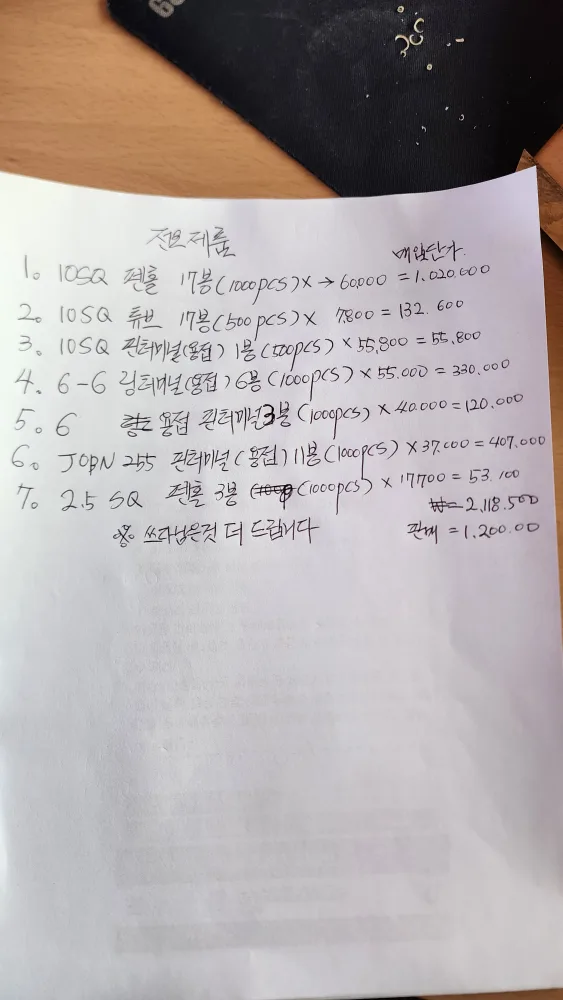 전오제품
매입단가
1. 10SQ 펜홀 17봉(1000pcs)× → 60000 = 1.020.000
2. 10SQ 튜브 17봉(500pcs)× 7.800 = 132.600
3. 10SQ 핀터미널(용접) 1봉(500pcs) × 55,800 = 55,800
4. 6-6 링터미널(용접) 6봉(1000pcs) × 55.000 = 330.000
5. 6 용접 핀터미널 3봉 (1000pcs) × 40.000 = 120.000
6. JOPN 255 핀터미널(용접) 11봉(1000pcs) × 37.000 = 407.000
7. 2.5 SQ 펜홀 3봉 (1000pcs) × 17700 = 53.100
₩= 2,118.500
※ 쓰다남은것 더 드립니다
판매 = 1.200.00